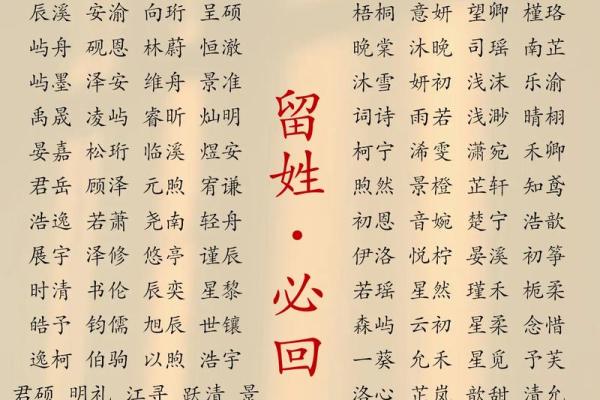 辰溪 安渝 向珩 呈硕
屿舟 砚恩 林蔚 恒澈
屿墨 泽安 维舟 景准
禹晟 凌屿 睿昕 灿明
晏嘉 松珩 临溪 煜安
君岳 顾泽 元煦 宥谦
浩逸 若萧 尧南 轻舟
展宇 泽修 悠亭 谨辰
时清 书伦 辰奕 星黎
皓予 钧儒 旭辰 世镶
逸柯 伯驹 以煦 浩宇
君硕 明礼 江寻 跃清 景
留姓·必回
梧桐 意妍 望卿 槿珞
晚棠 沐晚 司瑶 南芷
沐雪 妍初 浅沫 乐渝
词诗 雨若 浅渺 晴栩
柯宁 浠雯 潇宛 禾卿
煦然 景橙 芷轩 知鸢
初恩 音婉 楚宁 浩歆
伊洛 悦柠 晏溪 初筝
若瑶 星然 瑾禾 栀柔
森屿 云初 星柔 念惜
一葵 允禾 星觅 予芙
洛心 芷岚 歆甜 清允